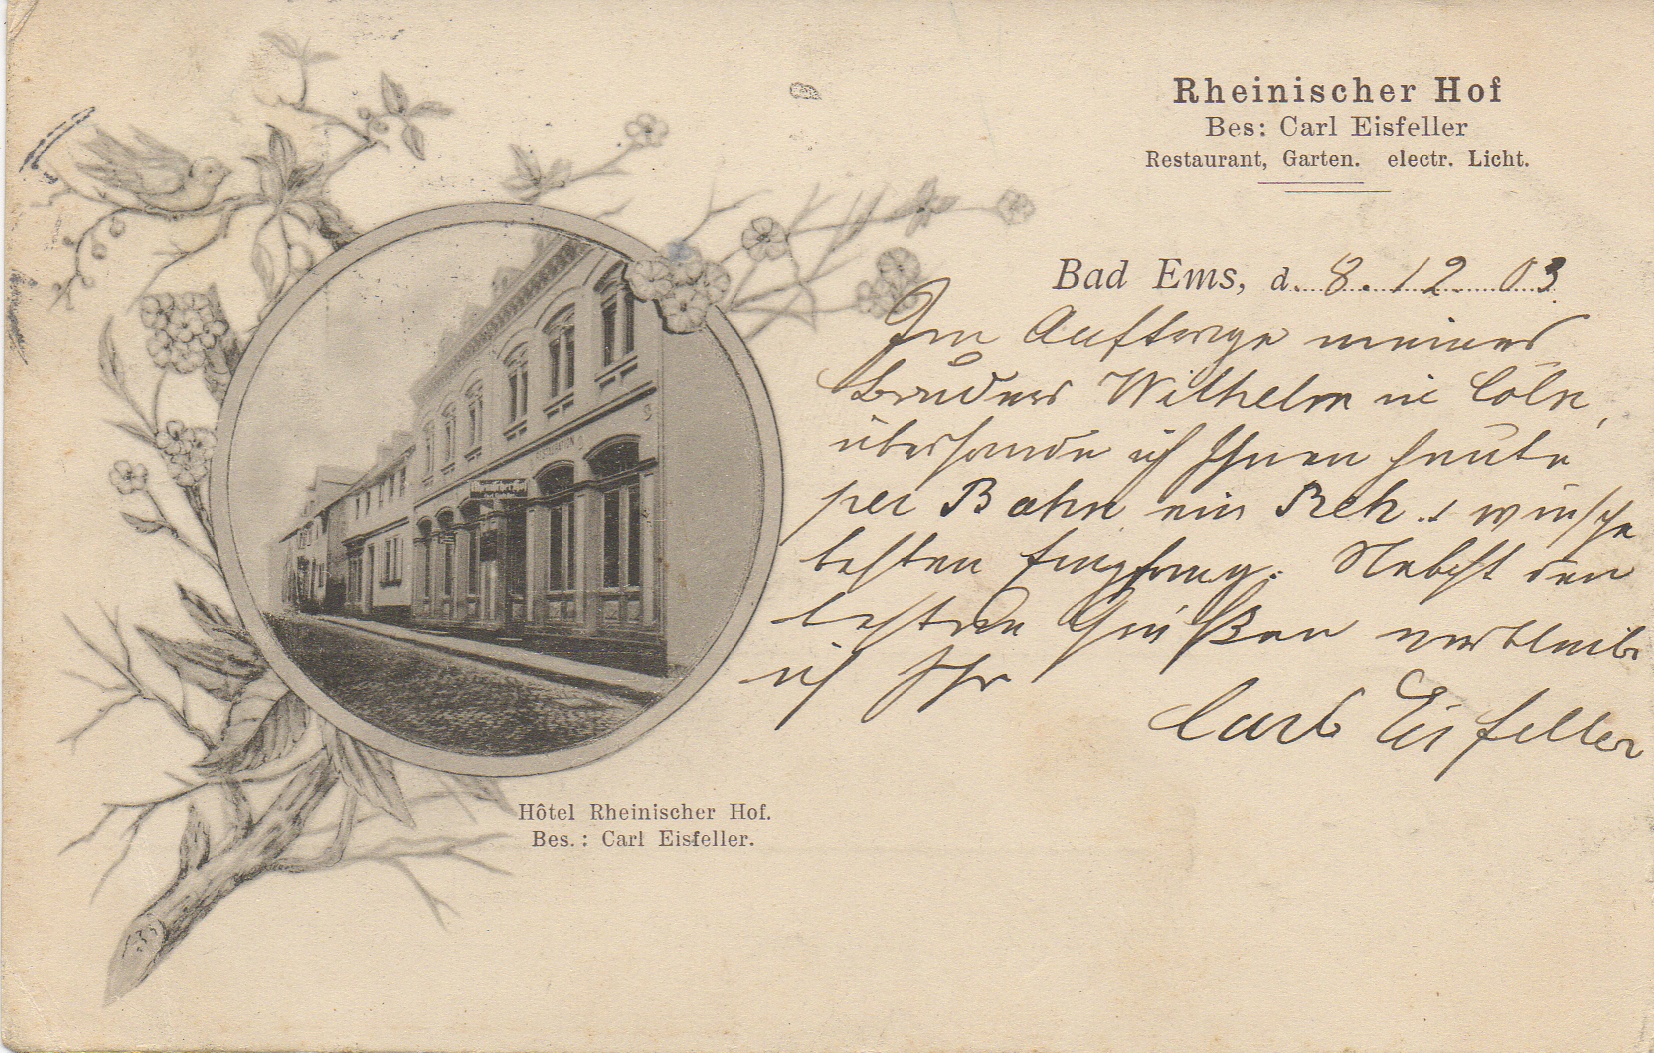 Rheinischer Hof
Bes: Carl Eisfeller
Restaurant, Garten. electr. Licht.
Bad Ems, d. 8. 12 03
Im Auftrage meines
Bruders Wilhelm in Cöln,
übersande ich Ihnen heute
per Bahn ein Reh u. wünsche
besten Empfang. Nebst den
besten Grüßen verbleibe
ich Ihr
Carl Eisfeller
Rheinischer Hof
Hôtel Rheinischer Hof.
Bes.: Carl Eisfeller.